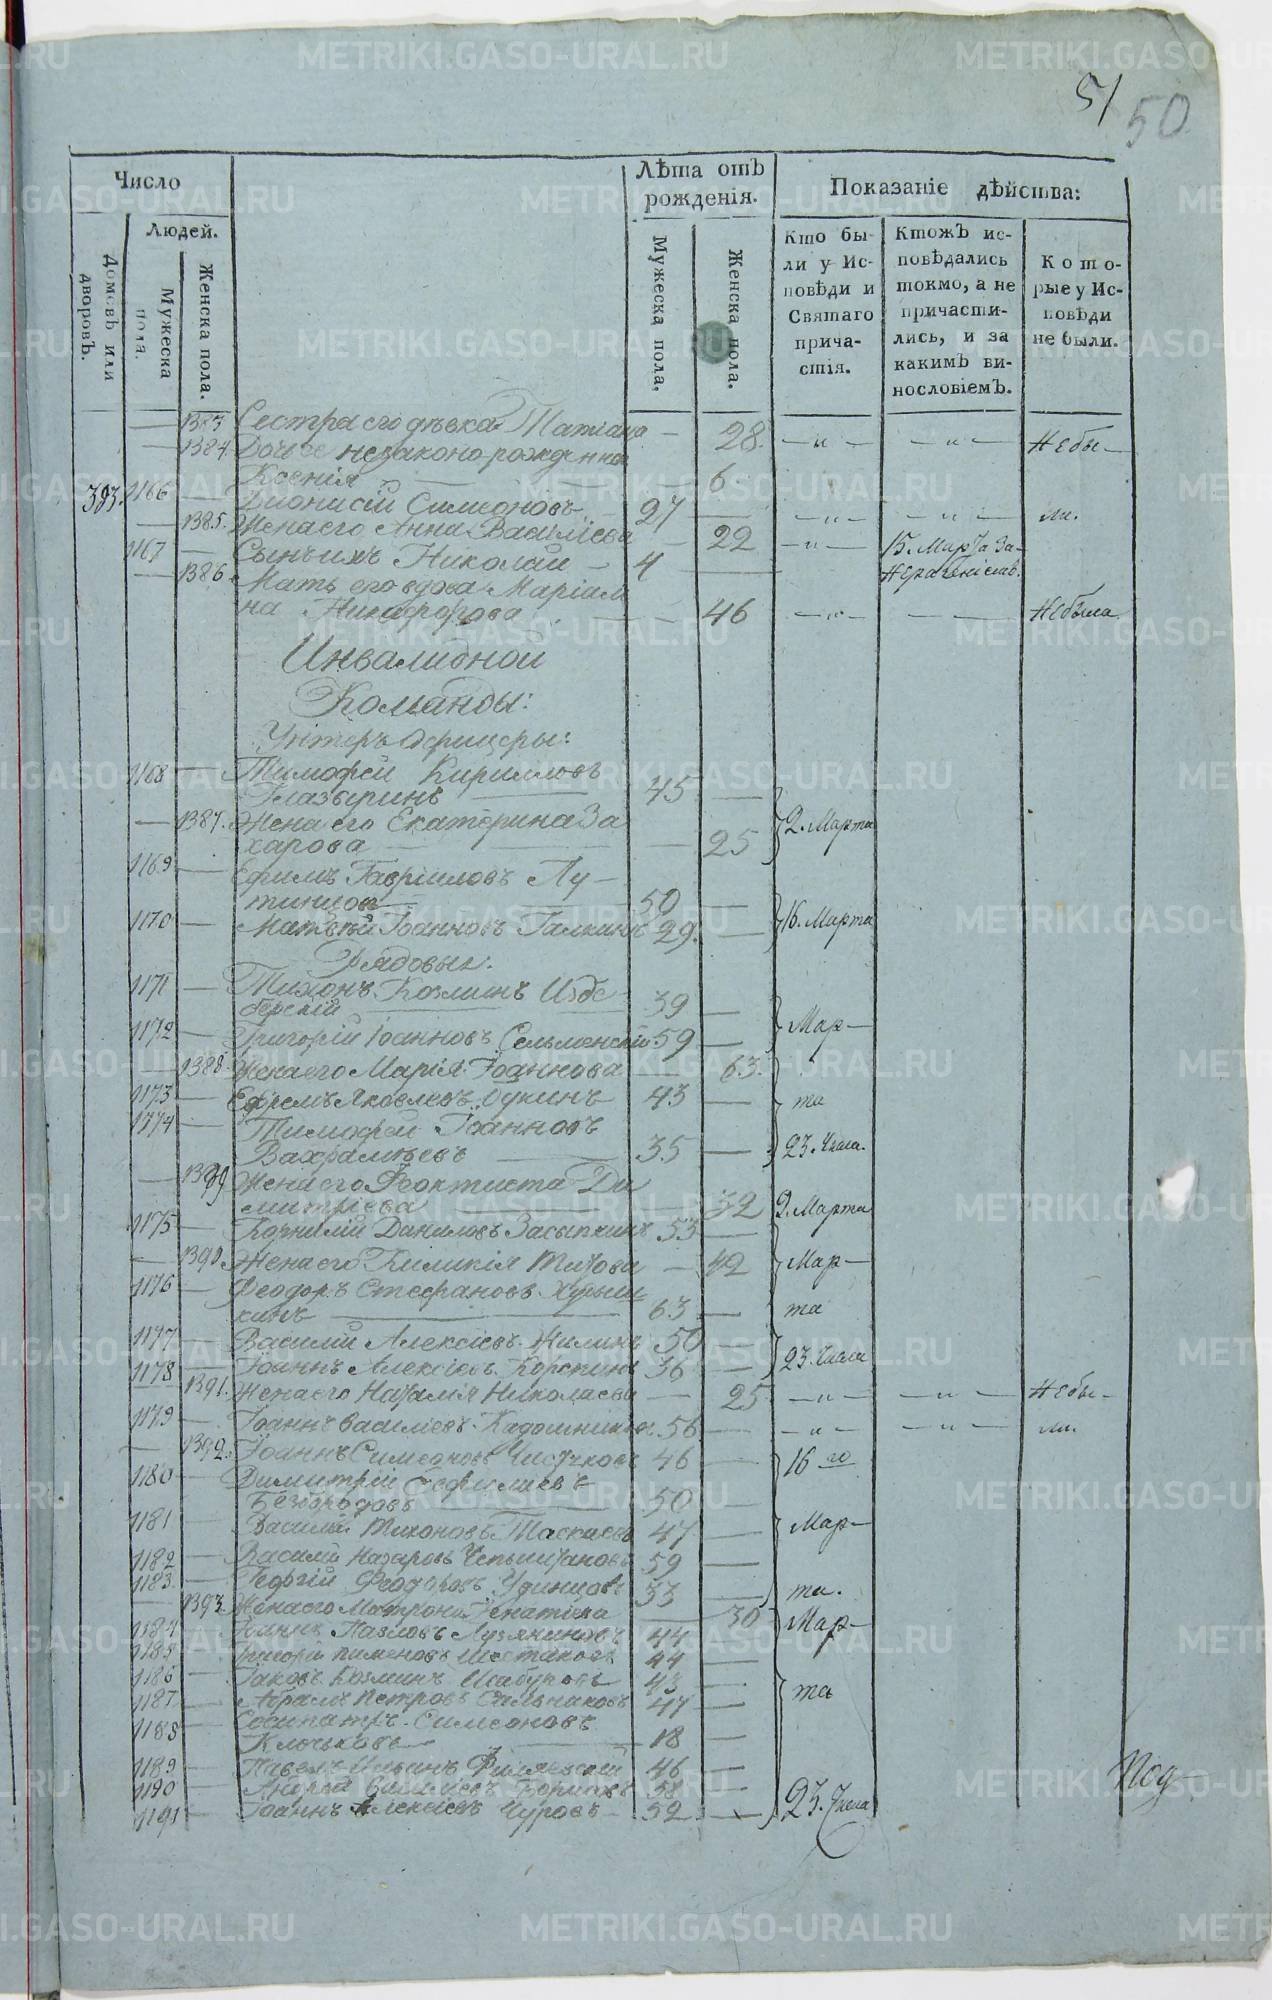 51
50
Число
Людей.
Домовъ или дворовъ.
Мужеска пола.
Женска пола.
Лѣта отъ рожденія.
Мужеска пола,
Женска пола.
Показаніе дѣйства:
Кто бы-
ли у Ис-
повѣди и
Святаго
прича-
стія.
Ктожъ ис-
повѣдались
токмо, а не
причасти-
лись, и за
какимъ ви-
нословіемъ.
Кото-
рые у Ис-
повѣди
не были.
— 1383 Сестра его дѣвка Татіана — 28. — „ — — „ — Небы —
— 1384 Дочь ее незаконорожденна
Ксенія — 6
393. 1166 — Дионисій Симеоновъ 27 — — „ — — „ — ли.
— 1385. Жена его Анна Василіева — 22 — „ — 15. Марта За
1167 — Сынъ ихъ Николай — 4 —
— 1386 Мать его вдова Маріам
на Никифорова — 46 — „ — — — Небыла
Инвалидной
Команды:
Унтеръ Офицеры:
1168 — Тимофей Кирилловъ
Глазыринъ — 45 —
— 1387. Жена его Екатерина За
харова — 25 2. Марта
1169 — Ефимъ Гавріиловъ Пу-
тинцовъ 50 —
1170 — Матвѣй Іоанновъ Галкинъ 29. — 16. Марта
Рядовые.
1171 — Тихонъ Козминъ Избе
берскій — 39 —
1172 — Григорій Іоанновъ Сельменскій 59 — Мар—
— 1388 Жена его Марія Іоаннова — 63.
1173 — Ефремъ Яковлевъ Букинъ 43 — та
1174 — Тимофей Іоанновъ
Вахрамѣевъ — 35 — 23. Числа.
— 1389 Жена его Феоктиста Ди
митріева — 32 9. Марта
1175 — Корнилій Даниловъ Засыпкинъ 53 —
— 1390. Жена его Киликія Титова — 42 Мар—
1176 — Феодоръ Стефановъ
хинъ — 63 — та
1177 — Василій Алексіевъ Жилинъ 50 —
1178 — Іоаннъ Алексіевъ 36 — 23. Числа
— 1391. Жена его Наталія Николаева — 25. — „ — — „ — Небы —
1179 — Іоаннъ Василіевъ Кадошниковъ 56. — — „ — — „ — ли.
— 1392. Іоаннъ Симеоновъ Чистяковъ 46 — 16 го
1180 — Димитрій
Безбородовъ — 50 —
1181 — Василій Тихоновъ Таскаевъ 47 — Мар—
1182 — Василій Назаровъ 59 —
1183 — Георгій Феодоровъ Удинцовъ 33 — та.
— 1393 Жена его Матрона Игнатіева — 30 Мар—
1184 — Іоаннъ Павловъ Лузяниновъ 44 —
1185 — Григорій Пименовъ Шестаковъ 44 —
1186 — Іаковъ Козминъ Шабуровъ 43 — та
1187 — Абрамъ Петровъ Сальниковъ 47 —
1188 — Сосипатръ Симеоновъ
Клочковъ — 18 —
1189 — Павелъ Ильинъ 46 —
1190 — Андрей Василіевъ 58 —
1191 — Іоаннъ Алексіевъ Чуровъ 52 — 23. Числа
Под—
METRIKI.GASO-URAL.RU